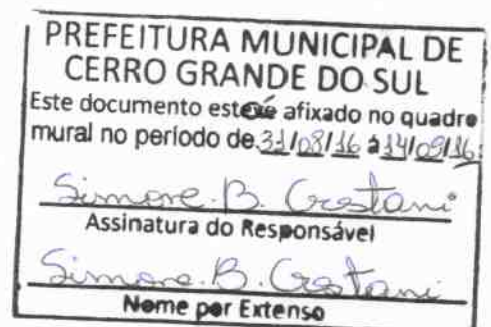 PREFEITURA MUNICIPAL DE
CERRO GRANDE DO SUL
Este documento esteve afixado no quadro
mural no período de 31/08/16 à 14/09/16.
Simone.B. Crestani
Assinatura do Responsável
Simone.B. Crestani
Nome por Extenso